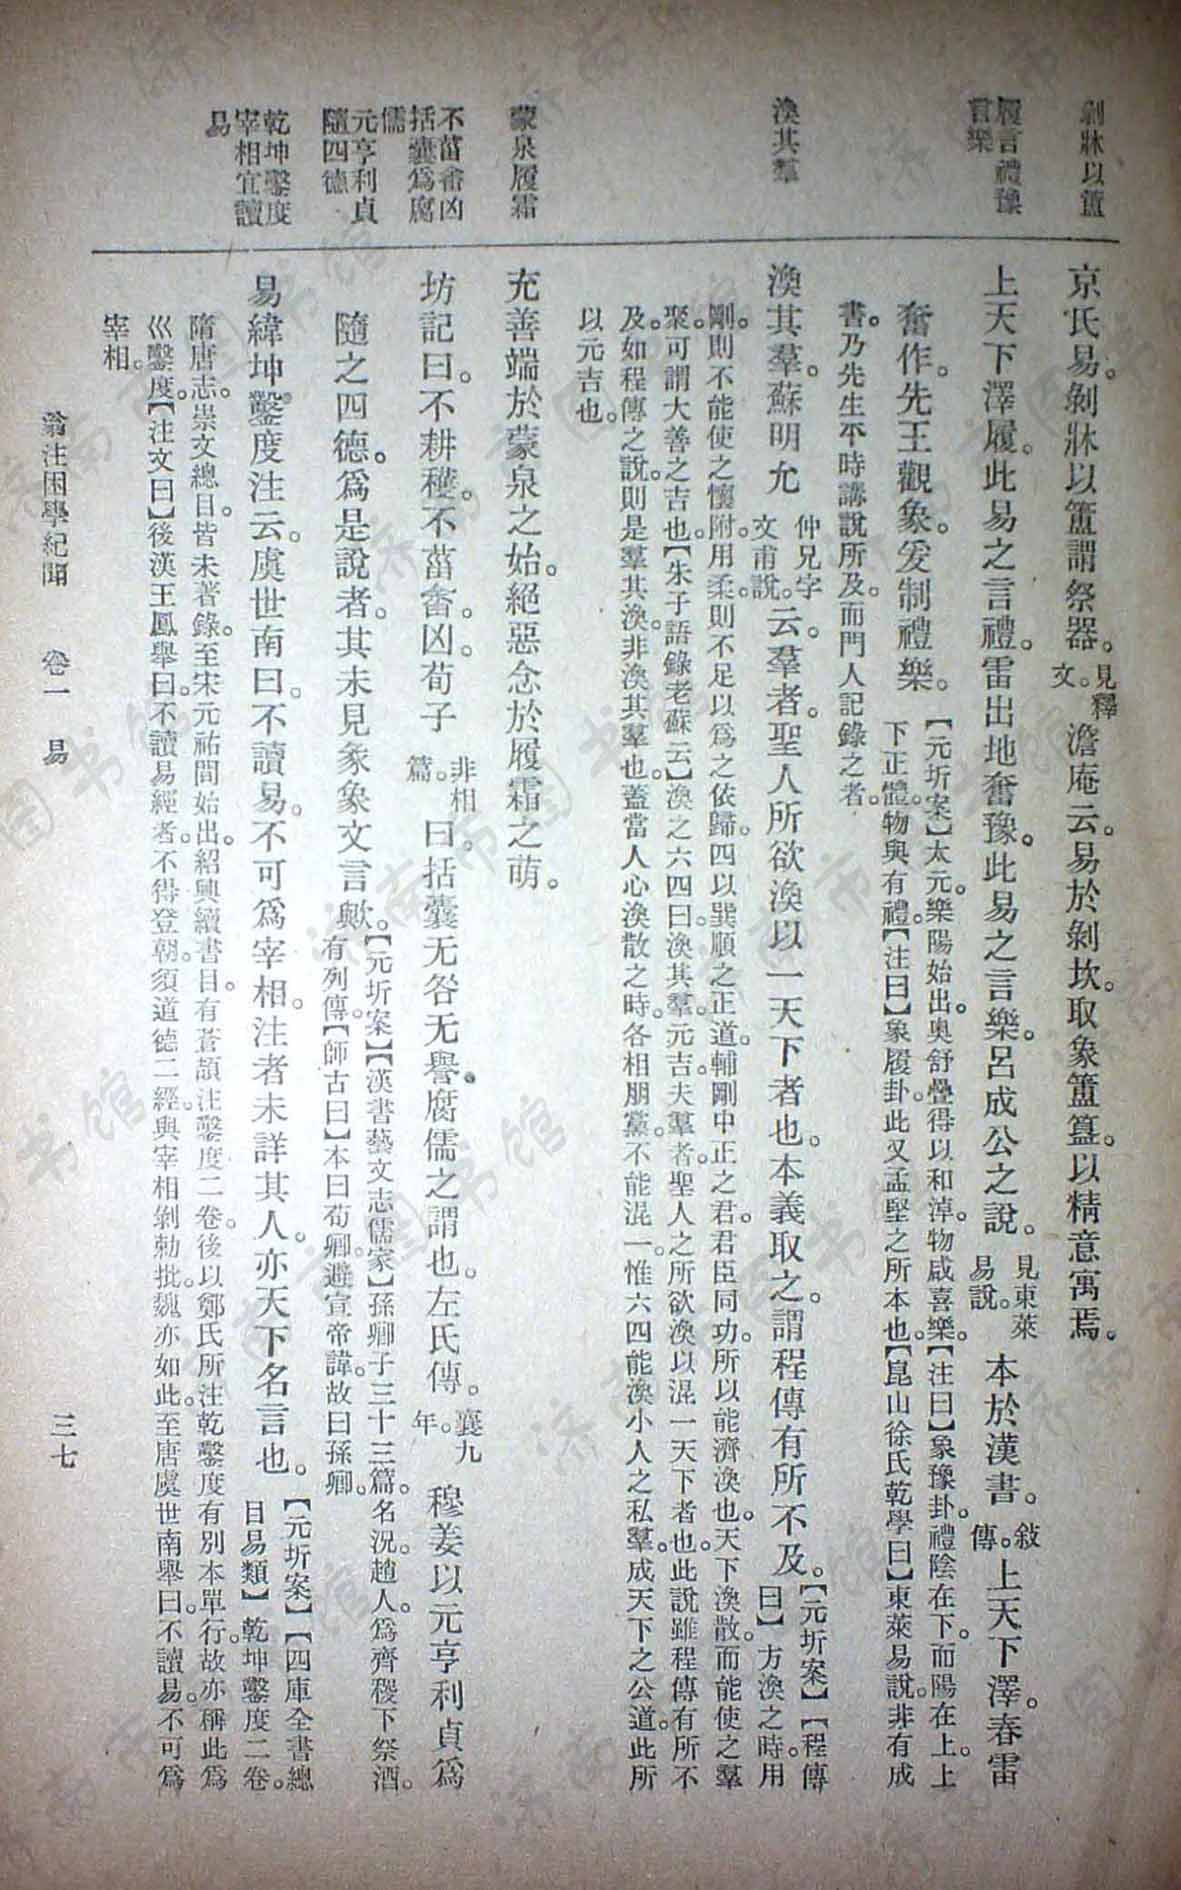 剝牀以簠
履言禮豫
言樂
渙其羣
蒙泉履霜
不菑畬凶
括囊爲腐
儒
元亨利貞
隨四德
乾坤鑿度
宰相宜讀
易
京氏易。剝牀以簠謂祭器。見釋文。澹庵云。易於剝坎。取象簠簋。以精意寓焉。
上天下澤履。此易之言禮。雷出地奮豫。此易之言樂。呂成公之說。見東萊易說。本於漢書。敍傳。上天下澤。春雷
奮作。先王觀象。爰制禮樂。【元圻案】太元。樂陽始出。奧舒疊得以和淖。物咸喜樂。【注曰】象豫卦。禮陰在下。而陽在上。上
下正體。物與有禮。【注曰】象履卦。此又孟堅之所本也。【崑山徐氏乾學曰】東萊易說。非有成
書。乃先生平時講說所及。而門人記錄之者。
渙其羣。蘇明允仲兄字文甫說。云。羣者。聖人所欲渙以一天下者也。本義取之。謂程傳有所不及。【元圻案】【程傳
曰】方渙之時。用
剛。則不能使之懷附。用柔。則不足以爲之依歸。四以巽順之正道。輔剛中正之君。君臣同功。所以能濟渙也。天下渙散。而能使之羣
聚。可謂大善之吉也。【朱子語錄老蘇云】渙之六四曰。渙其羣。元吉。夫羣者。聖人之所欲渙以混一天下者也。此說雖程傳有所不
及。如程傳之說。則是羣其渙。非渙其羣也。蓋當人心渙散之時。各相朋黨。不能混一。惟六四能渙小人之私羣。成天下之公道。此所
以元吉也。
充善端於蒙泉之始。絕惡念於履霜之萌。
坊記曰。不耕穫。不菑畬。凶。荀子非相篇。曰。括囊无咎无譽。腐儒之謂也。左氏傳。襄九年。穆姜以元亨利貞爲
隨之四德。爲是說者。其未見彖象文言歟。【元圻案】【漢書藝文志儒家】孫卿子三十三篇。名況。趙人。爲齊稷下祭酒。
有列傳。【師古曰】本曰荀卿。避宣帝諱。故曰孫卿。
易緯坤鑿度注云。虞世南曰。不讀易。不可爲宰相。注者未詳其人。亦天下名言也。【元圻案】【四庫全書總
目易類】乾坤鑿度二卷。
隋唐志。崇文總目。皆未著錄。至宋元祐間始出。紹興續書目。有蒼頡注鑿度二卷。後以鄭氏所注乾鑿度有別本單行。故亦稱此爲
巛鑿度。【注文曰】後漢王鳳舉曰。不讀易經者。不得登朝。須道德二經。與宰相剝勅批。魏亦如此。至唐虞世南舉曰。不讀易。不可爲
宰相。
翁注困學紀聞　卷一　易　三七